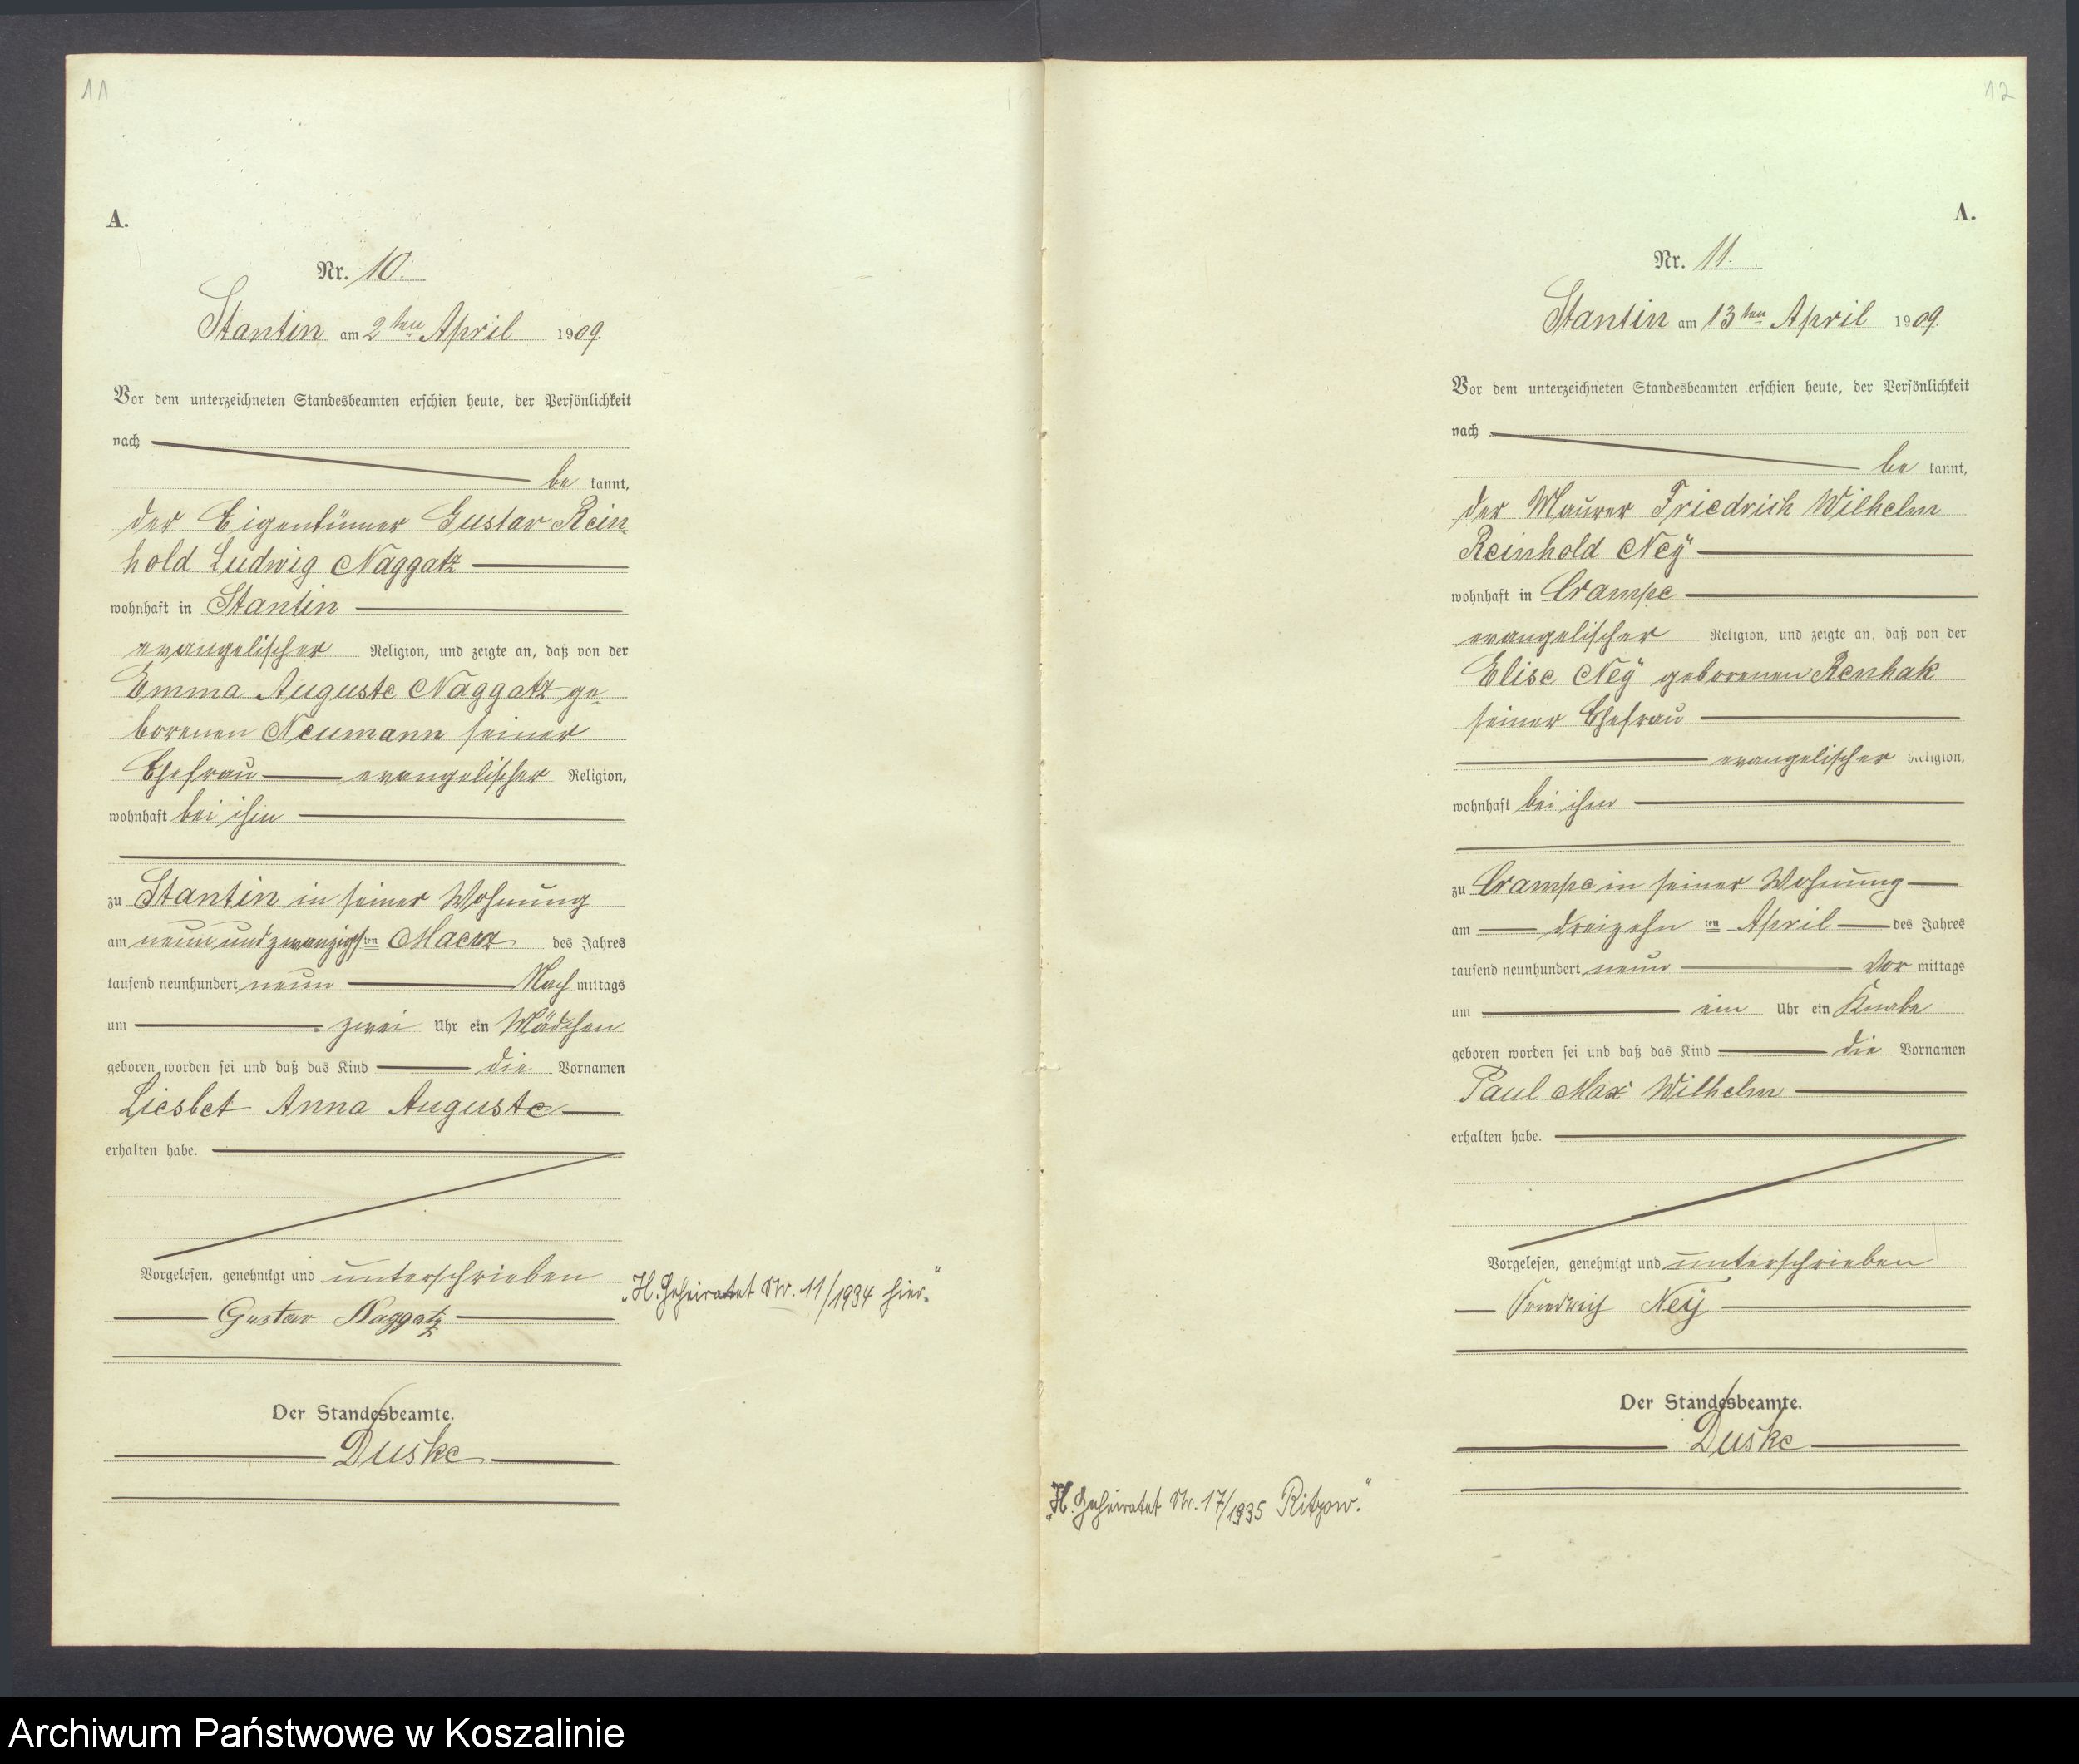 11
A.
Nr. 10.
Stantin am 2ten April 1909.
Vor dem unterzeichneten Standesbeamten erschien heute, der Persönlichkeit
nach
be kannt,
der Eigentümer Gustav Rein-
hold Ludwig Naggatz
wohnhaft in Stantin
evangelischer Religion, und zeigte an, daß von der
Emma Auguste Naggatz ge-
borenen Neumann seiner
Ehefrau evangelischer Religion,
wohnhaft bei ihm
zu Stantin in seiner Wohnung
am neun und zwanzigsten Maerz des Jahres
tausend neunhundert neun Nach mittags
um zwei Uhr ein Mädchen
geboren worden sei und daß das Kind die Vornamen
Liesbet Anna Auguste
erhalten habe.
Vorgelesen, genehmigt und unterschrieben
Gustav Naggatz
„H. Geheiratet Nr. 11/1934 hier."
Der Standesbeamte.
Duske
12
A.
Nr. 11.
Stantin am 13ten April 1909.
Vor dem unterzeichneten Standesbeamten erschien heute, der Persönlichkeit
nach
be kannt,
der Maurer Friedrich Wilhelm
Reinhold Neÿ
wohnhaft in Crampe
evangelischer Religion, und zeigte an, daß von der
Elise Neÿ geborenen Renhak
seiner Ehefrau
evangelischer Religion,
wohnhaft bei ihm
zu Crampe in seiner Wohnung
am dreizehn ten April des Jahres
tausend neunhundert neun Vor mittags
um ein Uhr ein Knabe
geboren worden sei und daß das Kind die Vornamen
Paul Max Wilhelm
erhalten habe.
Vorgelesen, genehmigt und unterschrieben
Friedrich Neÿ
Der Standesbeamte.
Duske
„H. Geheiratet Nr. 17/1935 Ritzow."
Archiwum Państwowe w Koszalinie